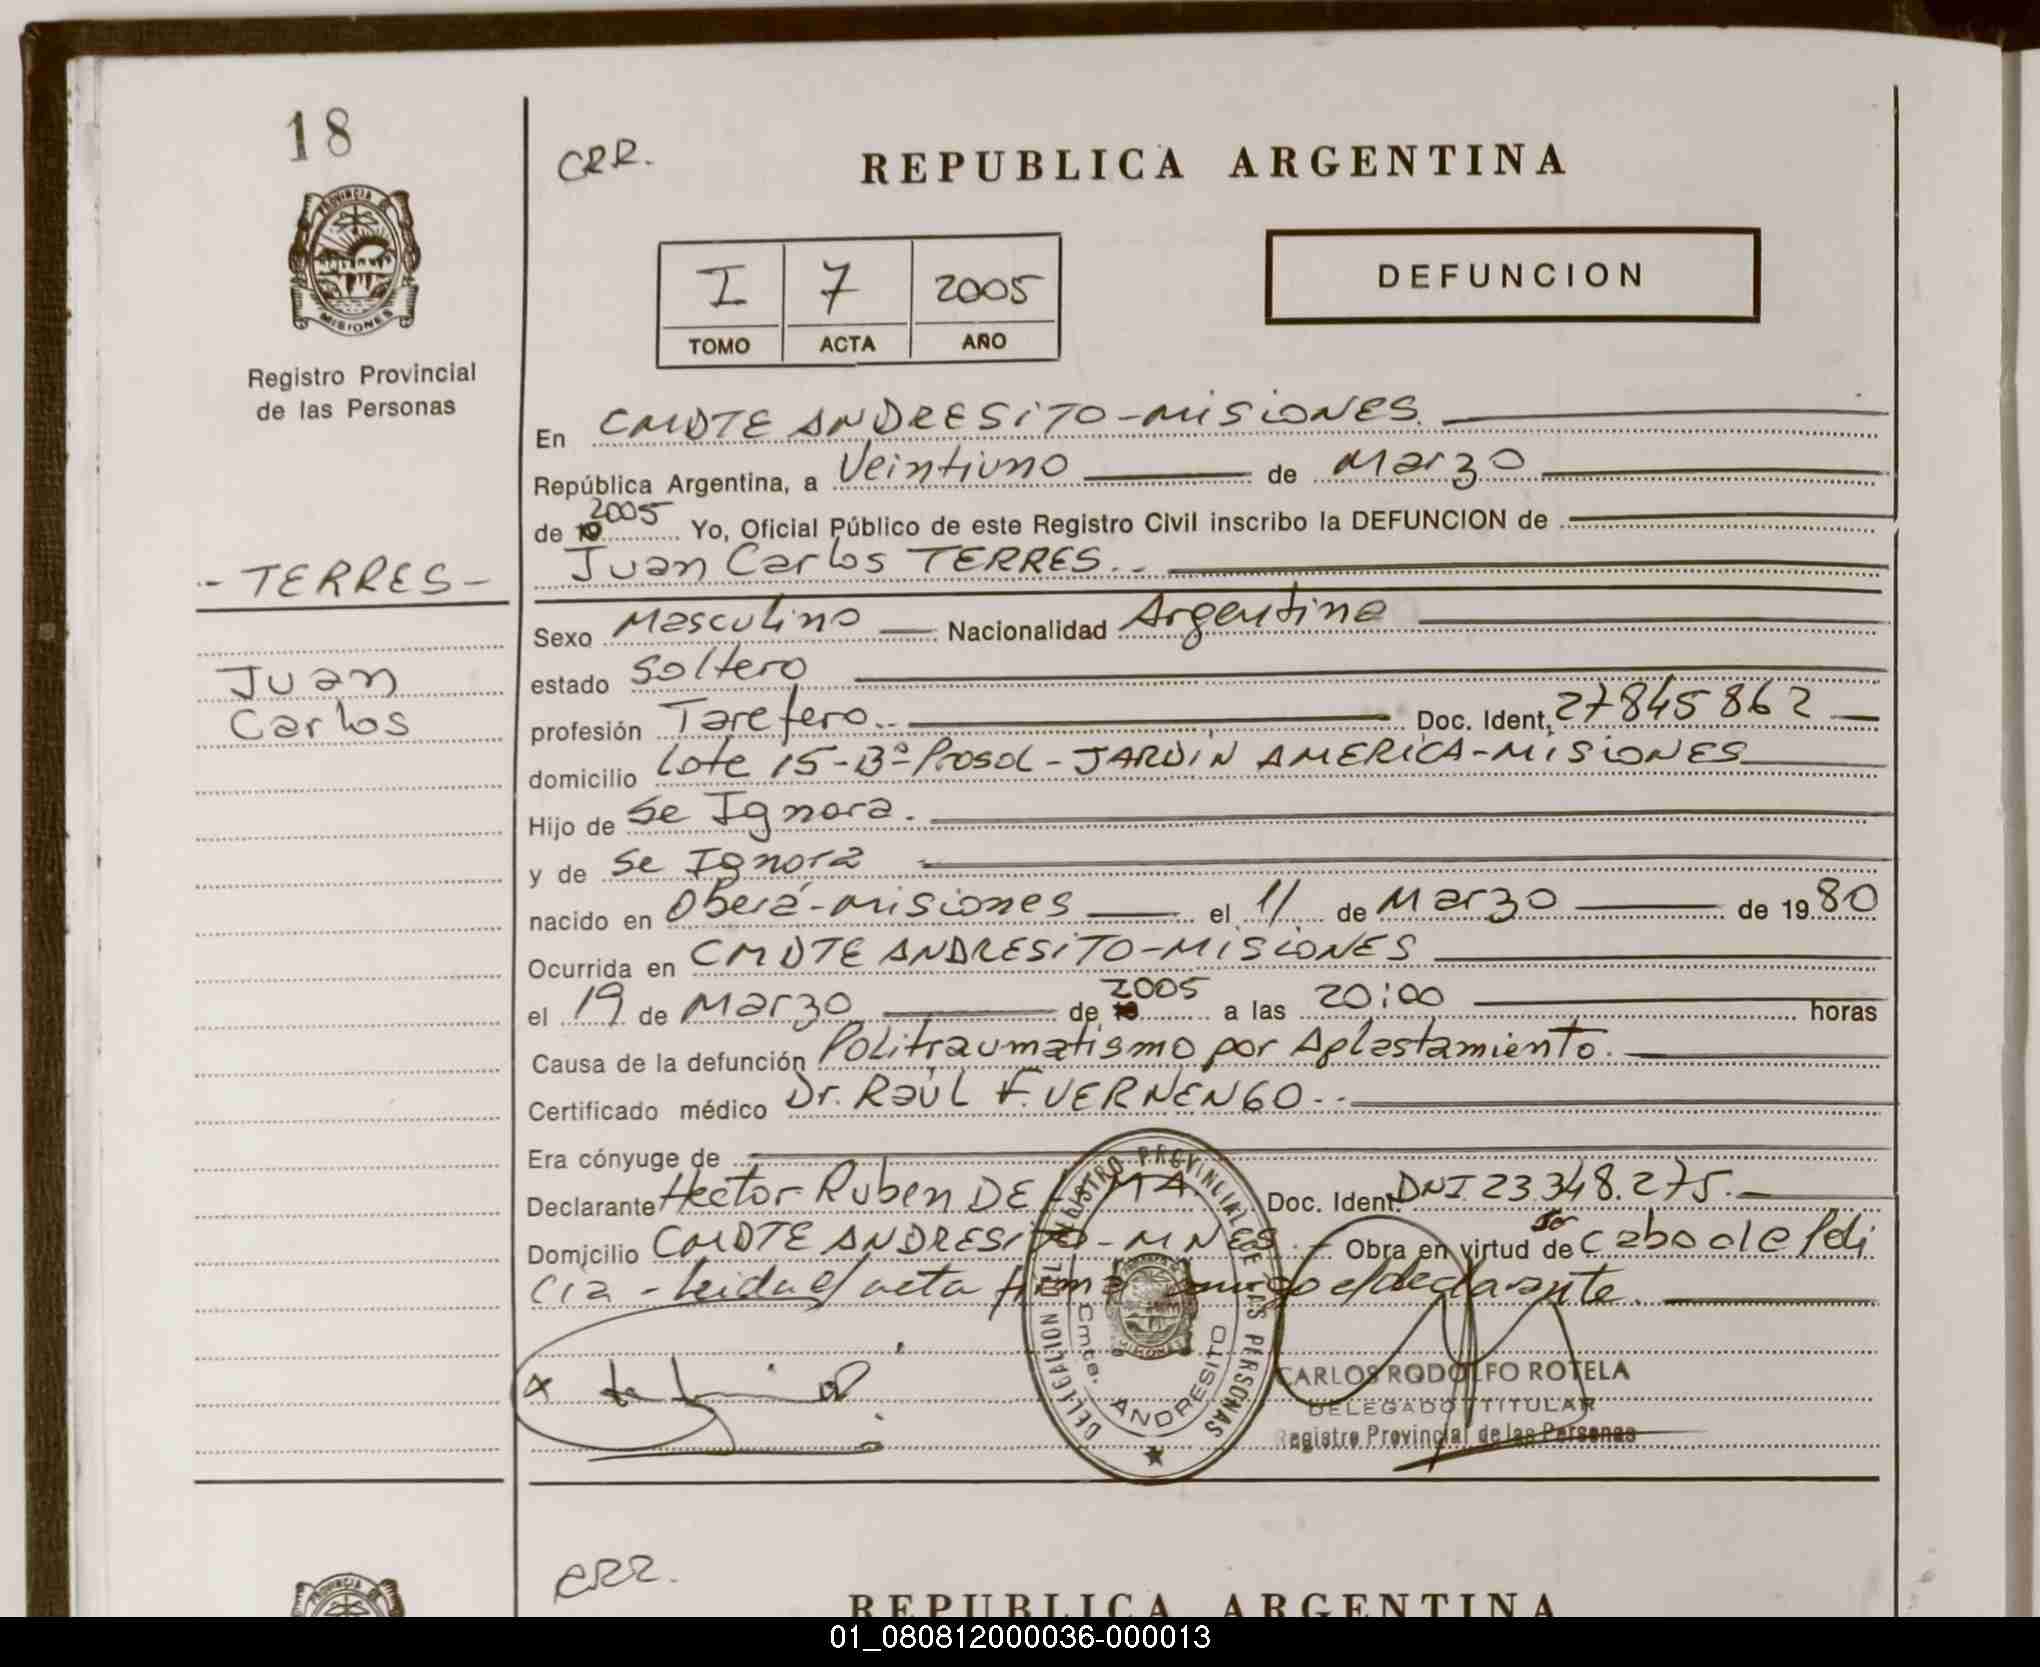 18
CRR.
REPUBLICA ARGENTINA
PROVINCIA DE
MISIONES
I 7 2005
TOMO ACTA AÑO
DEFUNCION
Registro Provincial
de las Personas
En CMDTE ANDRESITO-MISIONES.
República Argentina, a Veintiuno de Marzo
de 19 2005 Yo, Oficial Público de este Registro Civil inscribo la DEFUNCION de
Juan Carlos TERRES.
- TERRES -
Juan
Carlos
Sexo Masculino Nacionalidad Argentina
estado Soltero
profesión Tarefero.. Doc. Ident. 27845862
domicilio Lote 15-Bº Prosol - JARDIN AMERICA-MISIONES
Hijo de Se Ignora.
y de Se Ignora
nacido en Oberá-Misiones el 11 de Marzo de 1980
Ocurrida en CMDTE ANDRESITO-MISIONES
el 19 de Marzo de 19 2005 a las 20:00 horas
Causa de la defunción Politraumatismo por Aplastamiento.
Certificado médico Dr. Raúl F. VERNENGO..
Era cónyuge de
Declarante Hector Ruben DE MA. Doc. Ident. DNI 23.348.275.
Domicilio CMDTE ANDRESITO-MNES. Obra en virtud de Cabo de Poli
cia - Leida el acta firma conmigo el declarante.
DELEGACION DEL REGISTRO PROVINCIAL DE LAS PERSONAS
Cmte. ANDRESITO
CARLOS RODOLFO ROTELA
DELEGADO TITULAR
Registro Provincial de las Personas
CRR.
PROVINCIA
REPUBLICA ARGENTINA
01_080812000036-000013